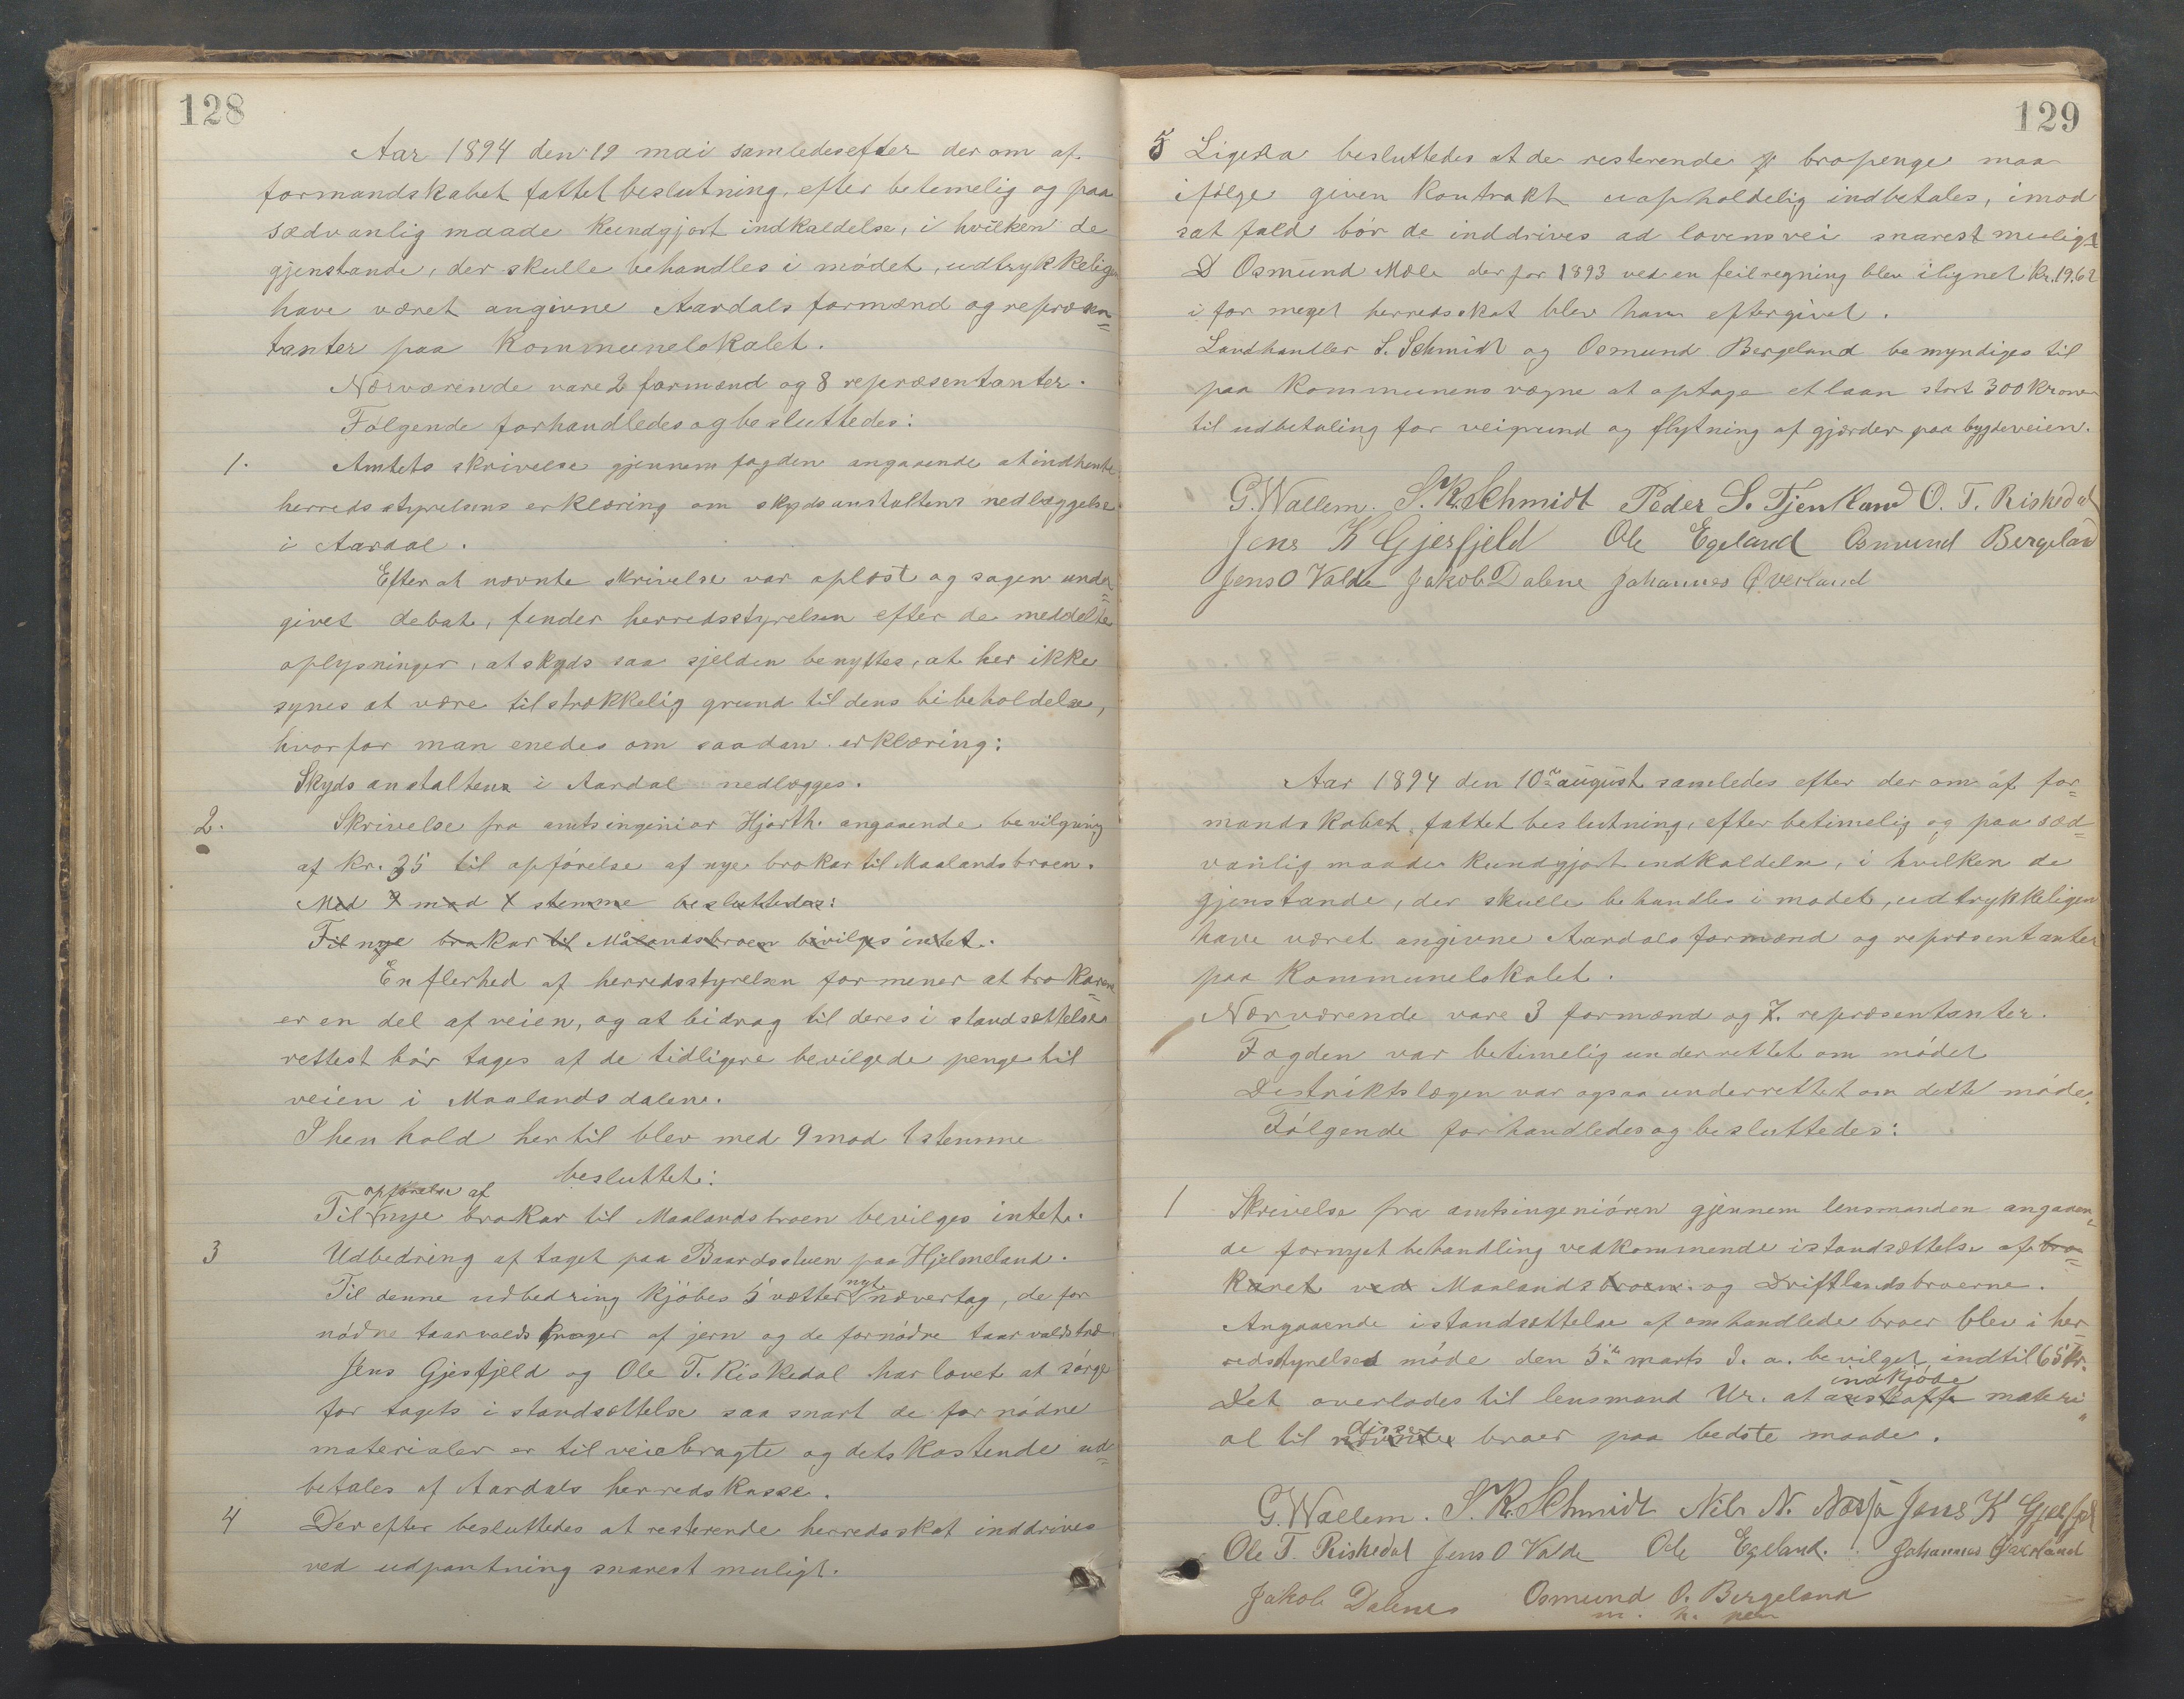 128
Aar 1894 den 19 mai samledes efter der om af
formandskabet fattet beslutning, efter betemelig og paa
sædvanlig maade kundgjort indkaldelse, i hvilken de
gjenstande, der skulle behandles i mödet, udtrykkeligen
have været angivne Aardals formænd og repræsen=
tanter paa Kommunelokalet.
Nærværende vare 2 formænd og 8 repræsentanter.
Følgende forhandledes og besluttedes:
1. Amtets skrivelse gjennem fogden angaaende at indhente
herredsstyrelsens erklæring om skydsanstaltens nedlæggelse
i Aardal.
Efter at nævnte skrivelse var oplæst og sagen under=
givet debat, finder herredsstyrelsen efter de meddelte
oplysninger, at skyds saa sjelden benyttes, at her ikke
synes at være tilstrækkelig grund til dens bibeholdelse,
hvorfor man enedes om saadan erklæring:
Skydsanstalten i Aardal nedlægges.
2. Skrivelse fra amtsingeniør Hjorth angaaende bevilgning
af kr. 35 til opførelse af nye brokar til Maalandsbroen.
Med 9 mod 1 stemme besluttedes:
Til nye brokar til Målandsbroen bevilges intet.
En flerhed af herredsstyrelsen formener at brokarene=
er en del af veien, og at bidrag til deres i standsættelse
rettest bör tages af de tidligere bevilgede penge til
veien i Maalandsdalen.
I henhold hertil blev med 9 mod 1 stemme
besluttet:
opførelse af
Til nye brokar til Maalandsbroen bevilges intet.
3 Udbedring af taget paa Baardsstuen paa Hjelmeland.
nyt
Til denne udbedring kjöbes 5 vætter nævertag, de for
nödne taarvolds kroger af jern og de fornödne taarvoldstræ
Jens Gjesfjeld og Ole T. Riskedal har lovet at sörge
for tagets i standsættelse saa snart de for nödne
materialer er tilveiebragte og dets kostende ud=
betales af Aardals herredskasse.
4 Derefter besluttedes at resterende herredsskat inddrives
ved udpantning snarest muligt.
129
5 Ligesaa besluttedes at de resterende bropenge maa
ifølge given Kontrakt uopholdelig indbetales, i mod
sat fald bör de inddrives ad lovens vei snarest muligt
Osmund Mæle der for 1893 ved en feilregning blev ilignet kr. 19,62
i for meget herredsskat blev ham eftergivet.
Landhandler S. Schmidt og Osmund Bergeland bemyndiges til
paa Kommunens vegne at optage et laan stort 300 kroner
til udbetaling for veigrund og flytning af gjærder paa bygdeveien.
G. Wallem. S. K. Schmidt Peder S. Tjentland O. T. Riskedal
Jens K Gjesfjeld Ole Egeland Osmund Bergeland
Jens O Valde Jakob Dalene Johannes Øverland
Aar 1894 den 10de august samledes efter der om af for=
mandskabet fattet beslutning, efter betimelig og paa sæd=
vanlig maade kundgjort indkaldelse, i hvilken de
gjenstande, der skulle behandles i mødet, udtrykkeligen
have været angivne Aardals formænd og repræsentanter
paa Kommunelokalet.
Nærværende vare 3 formænd og 7. repræsentanter.
Fogden var betimelig underrettet om mödet
Distriktslægen var ogsaa underrettet om dette möde.
Fölgende forhandledes og besluttedes:
1 Skrivelse fra amtsingeniören gjennem lensmanden angaaen=
de fornyet behandling vedkommende istandsættelse af bro=
karet ved Maalandsbroen. og Driftlandsbroerne.
Angaaende istandsættelse af omhandlede broer blev i her=
redsstyrelses möde den 5te marts d. a. bevilget indtil 65 kr.
indkjøbe
Det overlades til lensmand Ur. at anskaffe materi=
disse
al til nævnte broer paa bedste maade.
G. Wallem. S. K. Schmidt Nils N. Jens K Gjesfjel
Ole T. Riskedal Jens O Valde Ole Egeland. Johannes Øverland
Jakob Dalenes Osmund O. Bergeland
m. h. pen